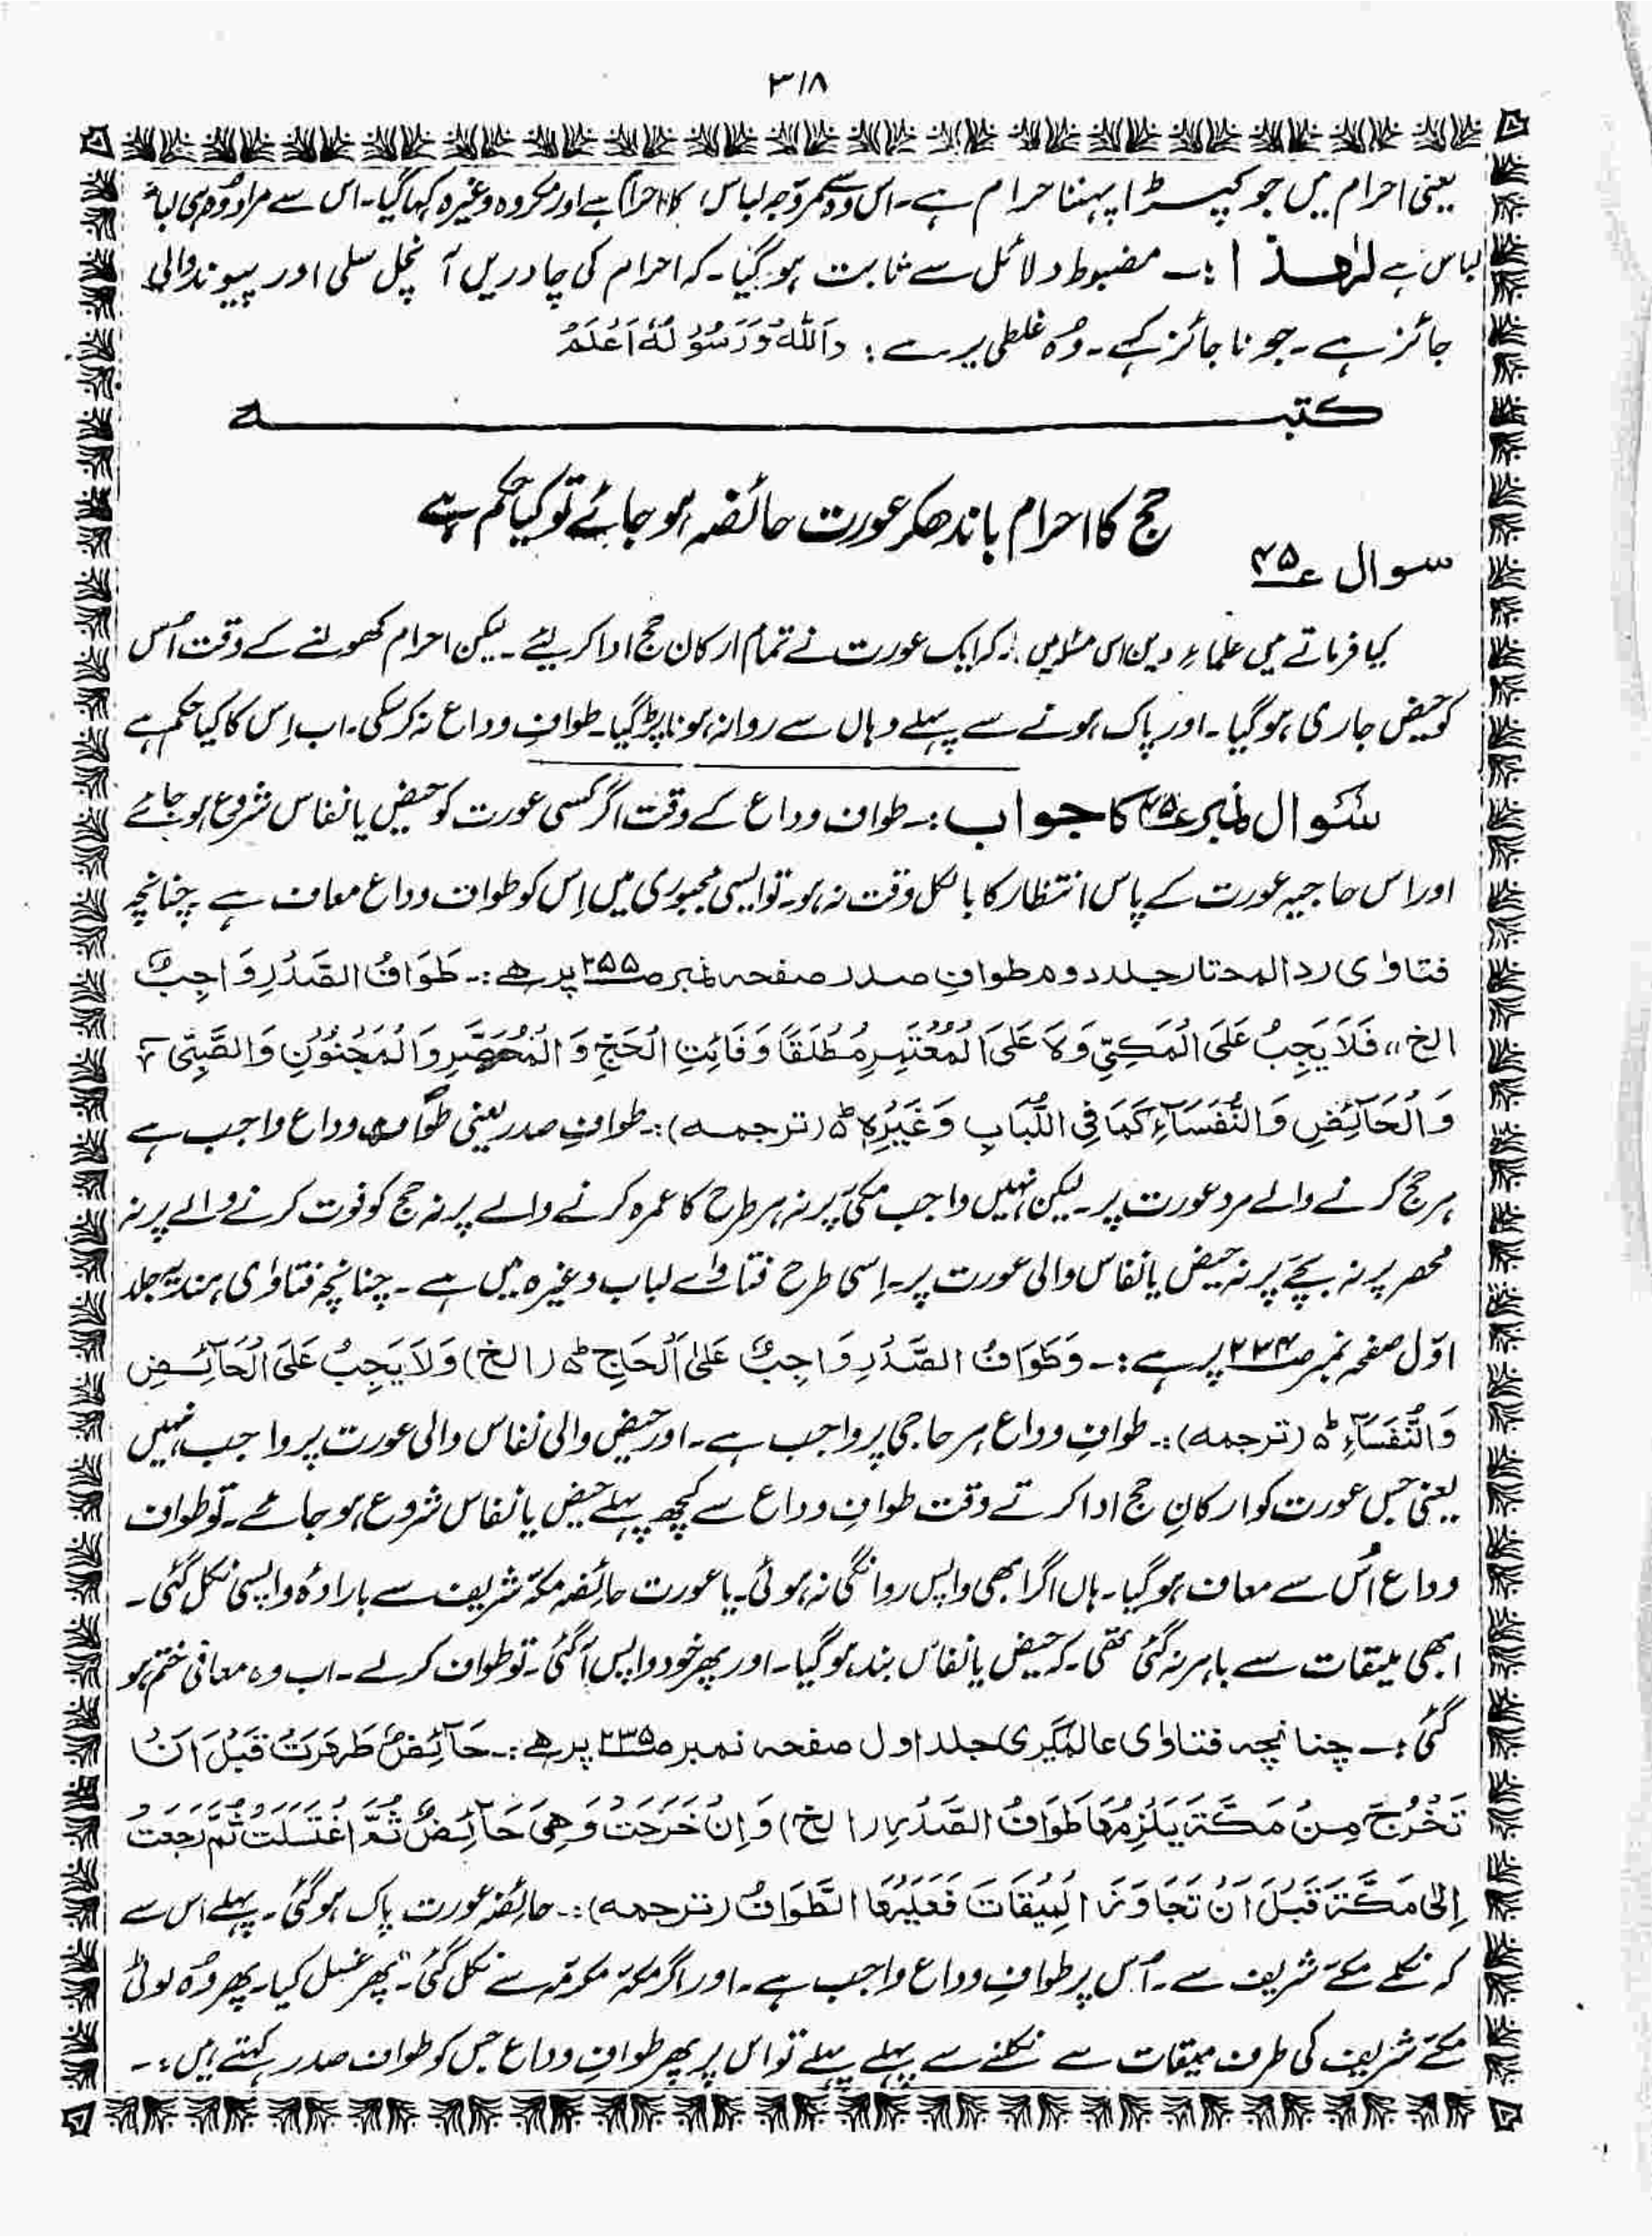 ۳۱۸
یعنی احرام میں جو کپڑا پہننا حرام ہے۔ اس سے وہ مروّجہ لباس کا احرام ہے اور مکروہ وغیرہ کہا گیا۔ اس سے مراد وُہ ہی لباس
لباس ہے لہٰذا :۔ مضبوط دلائل سے ثابت ہو گیا۔ کہ احرام کی چادریں آنچل سلی اور پیوند والی
جائز ہے۔ جو ناجائز کہے۔ وُہ غلطی پر ہے : وَاللهُ وَرَسُوْلُهٗ اَعْلَمُ
کتبــــــــــہ
حج کا احرام باندھکر عورت حائضہ ہو جائے تو کیا حکم ہے
سوال ؏۴۵
کیا فرماتے ہیں علماءِ دین اس مسئلہ میں :۔ کہ ایک عورت نے تمام ارکان حج ادا کر لیئے۔ لیکن احرام کھولنے کے وقت اُس
کو حیض جاری ہو گیا۔ اور پاک ہونے سے پہلے وہاں سے روانہ ہونا پڑ گیا۔ طوافِ وداع نہ کر سکی۔ اب اِس کا کیا حکم ہے
سُوال نمبر ؏۴۵ کا جواب :۔ طواف وداع کے وقت اگر کسی عورت کو حیض یا نفاس شروع ہو جائے
اور اس حاجیہ عورت کے پاس انتظار کا بالکل وقت نہ ہو۔ تو ایسی مجبوری میں اِس کو طواف وداع معاف ہے چنانچہ
فتاوٰی ردالمحتار جلد دوم طوافِ صدر صفحہ نمبر صـ۲۵۵ پر ہے :۔ طَوَافُ الصَّدْرِ وَاجِبٌ
الخ ،، فَلَا یَجِبُ عَلَی الْمَکِّیِّ وَلَا عَلَی الْمُعْتَمِرِ مُطْلَقًا وَفَائِتِ الْحَجِّ وَ الْمُحْصَرِ وَالْمَجْنُوْنِ وَالصَّبِیِّ
وَالْحَآئِضِ وَالنُّفَسَآءِ کَمَا فِی اللُّبَابِ وَغَیْرِہٖ ؕ (ترجمہ) :۔ طوافِ صدر یعنی طواف وداع واجب ہے
ہر حج کرنے والے مرد عورت پر۔ لیکن نہیں واجب مکّی پر نہ ہر طرح کا عمرہ کرنے والے پر نہ حج کو فوت کرنے والے پر نہ
محصر پر نہ بچّے پر نہ حیض یا نفاس والی عورت پر۔ اِسی طرح فتاواے لباب وغیرہ میں ہے۔ چنانچہ فتاوٰی ہندیہ جلد
اوّل صفحہ نمبر صـ۲۳۴ پر ہے :۔ وَطَوَافُ الصَّدْرِ وَاجِبٌ عَلَی الْحَاجِّ ؕ (الخ) وَلَا یَجِبُ عَلَی الْحَآئِضِ
وَالنُّفَسَآءِ ؕ (ترجمہ) :۔ طوافِ وداع ہر حاجی پر واجب ہے۔ اور حیض والی نفاس والی عورت پر واجب نہیں
یعنی جس عورت کو ارکانِ حج ادا کرتے وقت طوافِ وداع سے کچھ پہلے حیض یا نفاس شروع ہو جائے۔ تو طواف
وداع اُس سے معاف ہو گیا۔ ہاں اگر ابھی واپس روانگی نہ ہوئی۔ یا عورت حائضہ مکّہ شریف سے بارادۂ واپسی نکل گئی۔
ابھی میقات سے باہر نہ گئی تھی۔ کہ حیض یا نفاس بند ہو گیا۔ اور پھر خود واپس آگئی۔ تو طواف کرلے۔ اب وہ معافی ختم ہو
گئی :۔ چنانچہ فتاوٰی عالمگیری جلد اول صفحہ نمبر صـ۲۳۵ پر ہے :۔ حَآئِضٌ طَهُرَتْ قَبْلَ اَنْ
تَخْرُجَ مِنْ مَکَّةَ یَلْزِمُهَا طَوَافُ الصَّدْرِ (الخ) وَاِنْ خَرَجَتْ وَهِیَ حَآئِضٌ ثُمَّ اغْتَسَلَتْ ثُمَّ رَجَعَتْ
اِلٰی مَکَّةَ قَبْلَ اَنْ تَجَاوَزَ الْمِیْقَاتَ فَعَلَیْهَا الطَّوَافُ (ترجمہ) :۔ حائضہ عورت پاک ہو گئی۔ پہلے اس سے
کہ نکلے مکّے شریف سے۔ اُس پر طوافِ وداع واجب ہے۔ اور اگر مکّہ مکرمہ سے نکل گئی۔ پھر غسل کیا۔ پھر وُہ لوٹی
مکّے شریف کی طرف میقات سے نکلنے سے پہلے پہلے تو اس پر پھر طوافِ وداع جس کو طواف صدر کہتے ہیں :۔